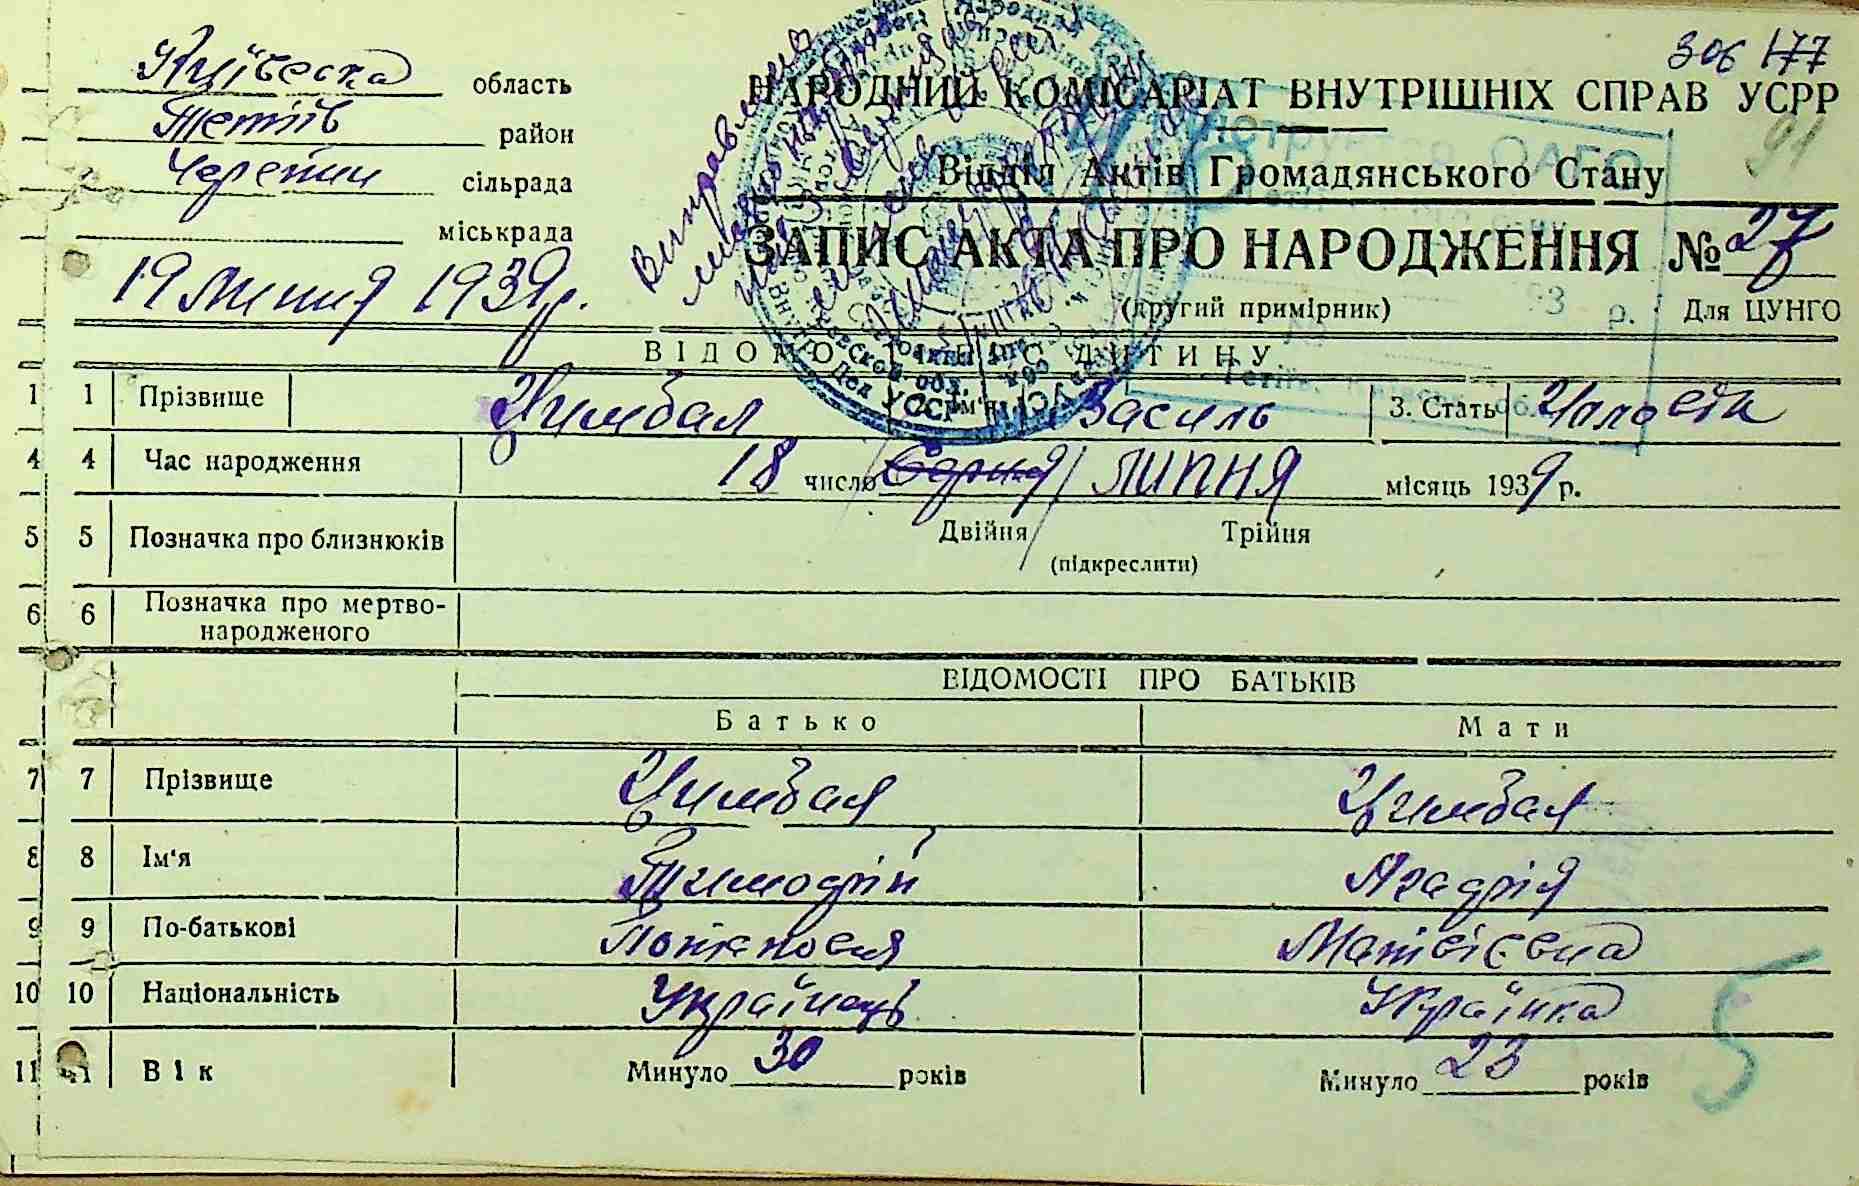 306 177
91
Київська область
Тетіїв район
Черепин сільрада
міськрада
19 Липня 1939 р.
НАРОДНИЙ КОМІСАРІАТ ВНУТРІШНІХ СПРАВ УСРР
Відділ Актів Громадянського Стану
ЗАПИС АКТА ПРО НАРОДЖЕННЯ № 27
(другий примірник) Для ЦУНГО
Виправлення
ВІДОМОСТІ ПРО ДИТИНУ
1 1 Прізвище Цимбал 2. Ім'я Василь 3. Стать
4 4 Час народження 18 число Серпня липня місяць 1939 р.
5 5 Позначка про близнюків Двійня Трійня
(підкреслити)
6 6 Позначка про мертво-
народженого
ВІДОМОСТІ ПРО БАТЬКІВ
Батько Мати
7 7 Прізвище Цимбал Цимбал
8 8 Ім'я Тимофій
9 9 По-батькові Матвієвна
10 10 Національність Українець Українка
11 11 Вік Минуло 30 років Минуло 23 років
5